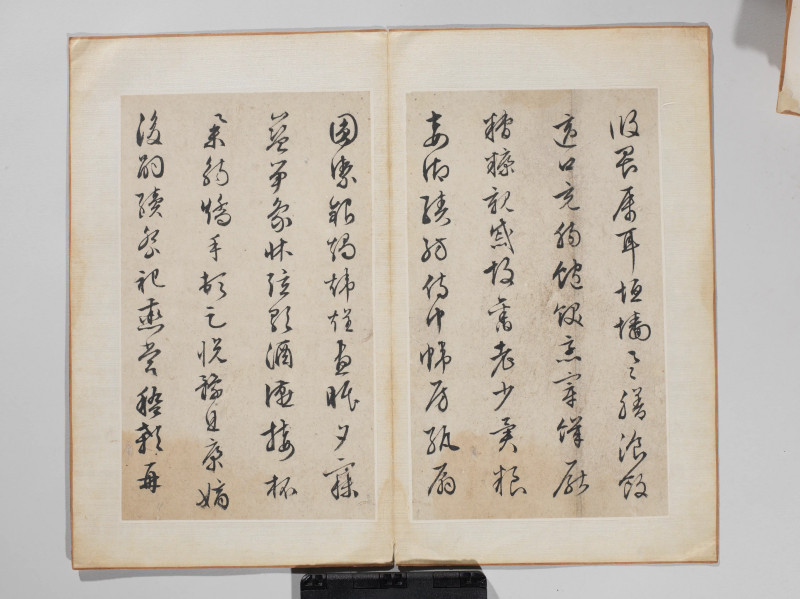 攸畏屬耳垣墻具膳飡飯
適口充腸飽飫烹宰饑厭
糟糠親戚故舊老少異糧
妾御績紡侍巾帷房紈扇
圓潔銀燭煒煌晝眠夕寐
藍筍象床弦歌酒讌接杯
舉觴矯手頓足悅豫且康嫡
後嗣續祭祀蒸嘗稽顙再